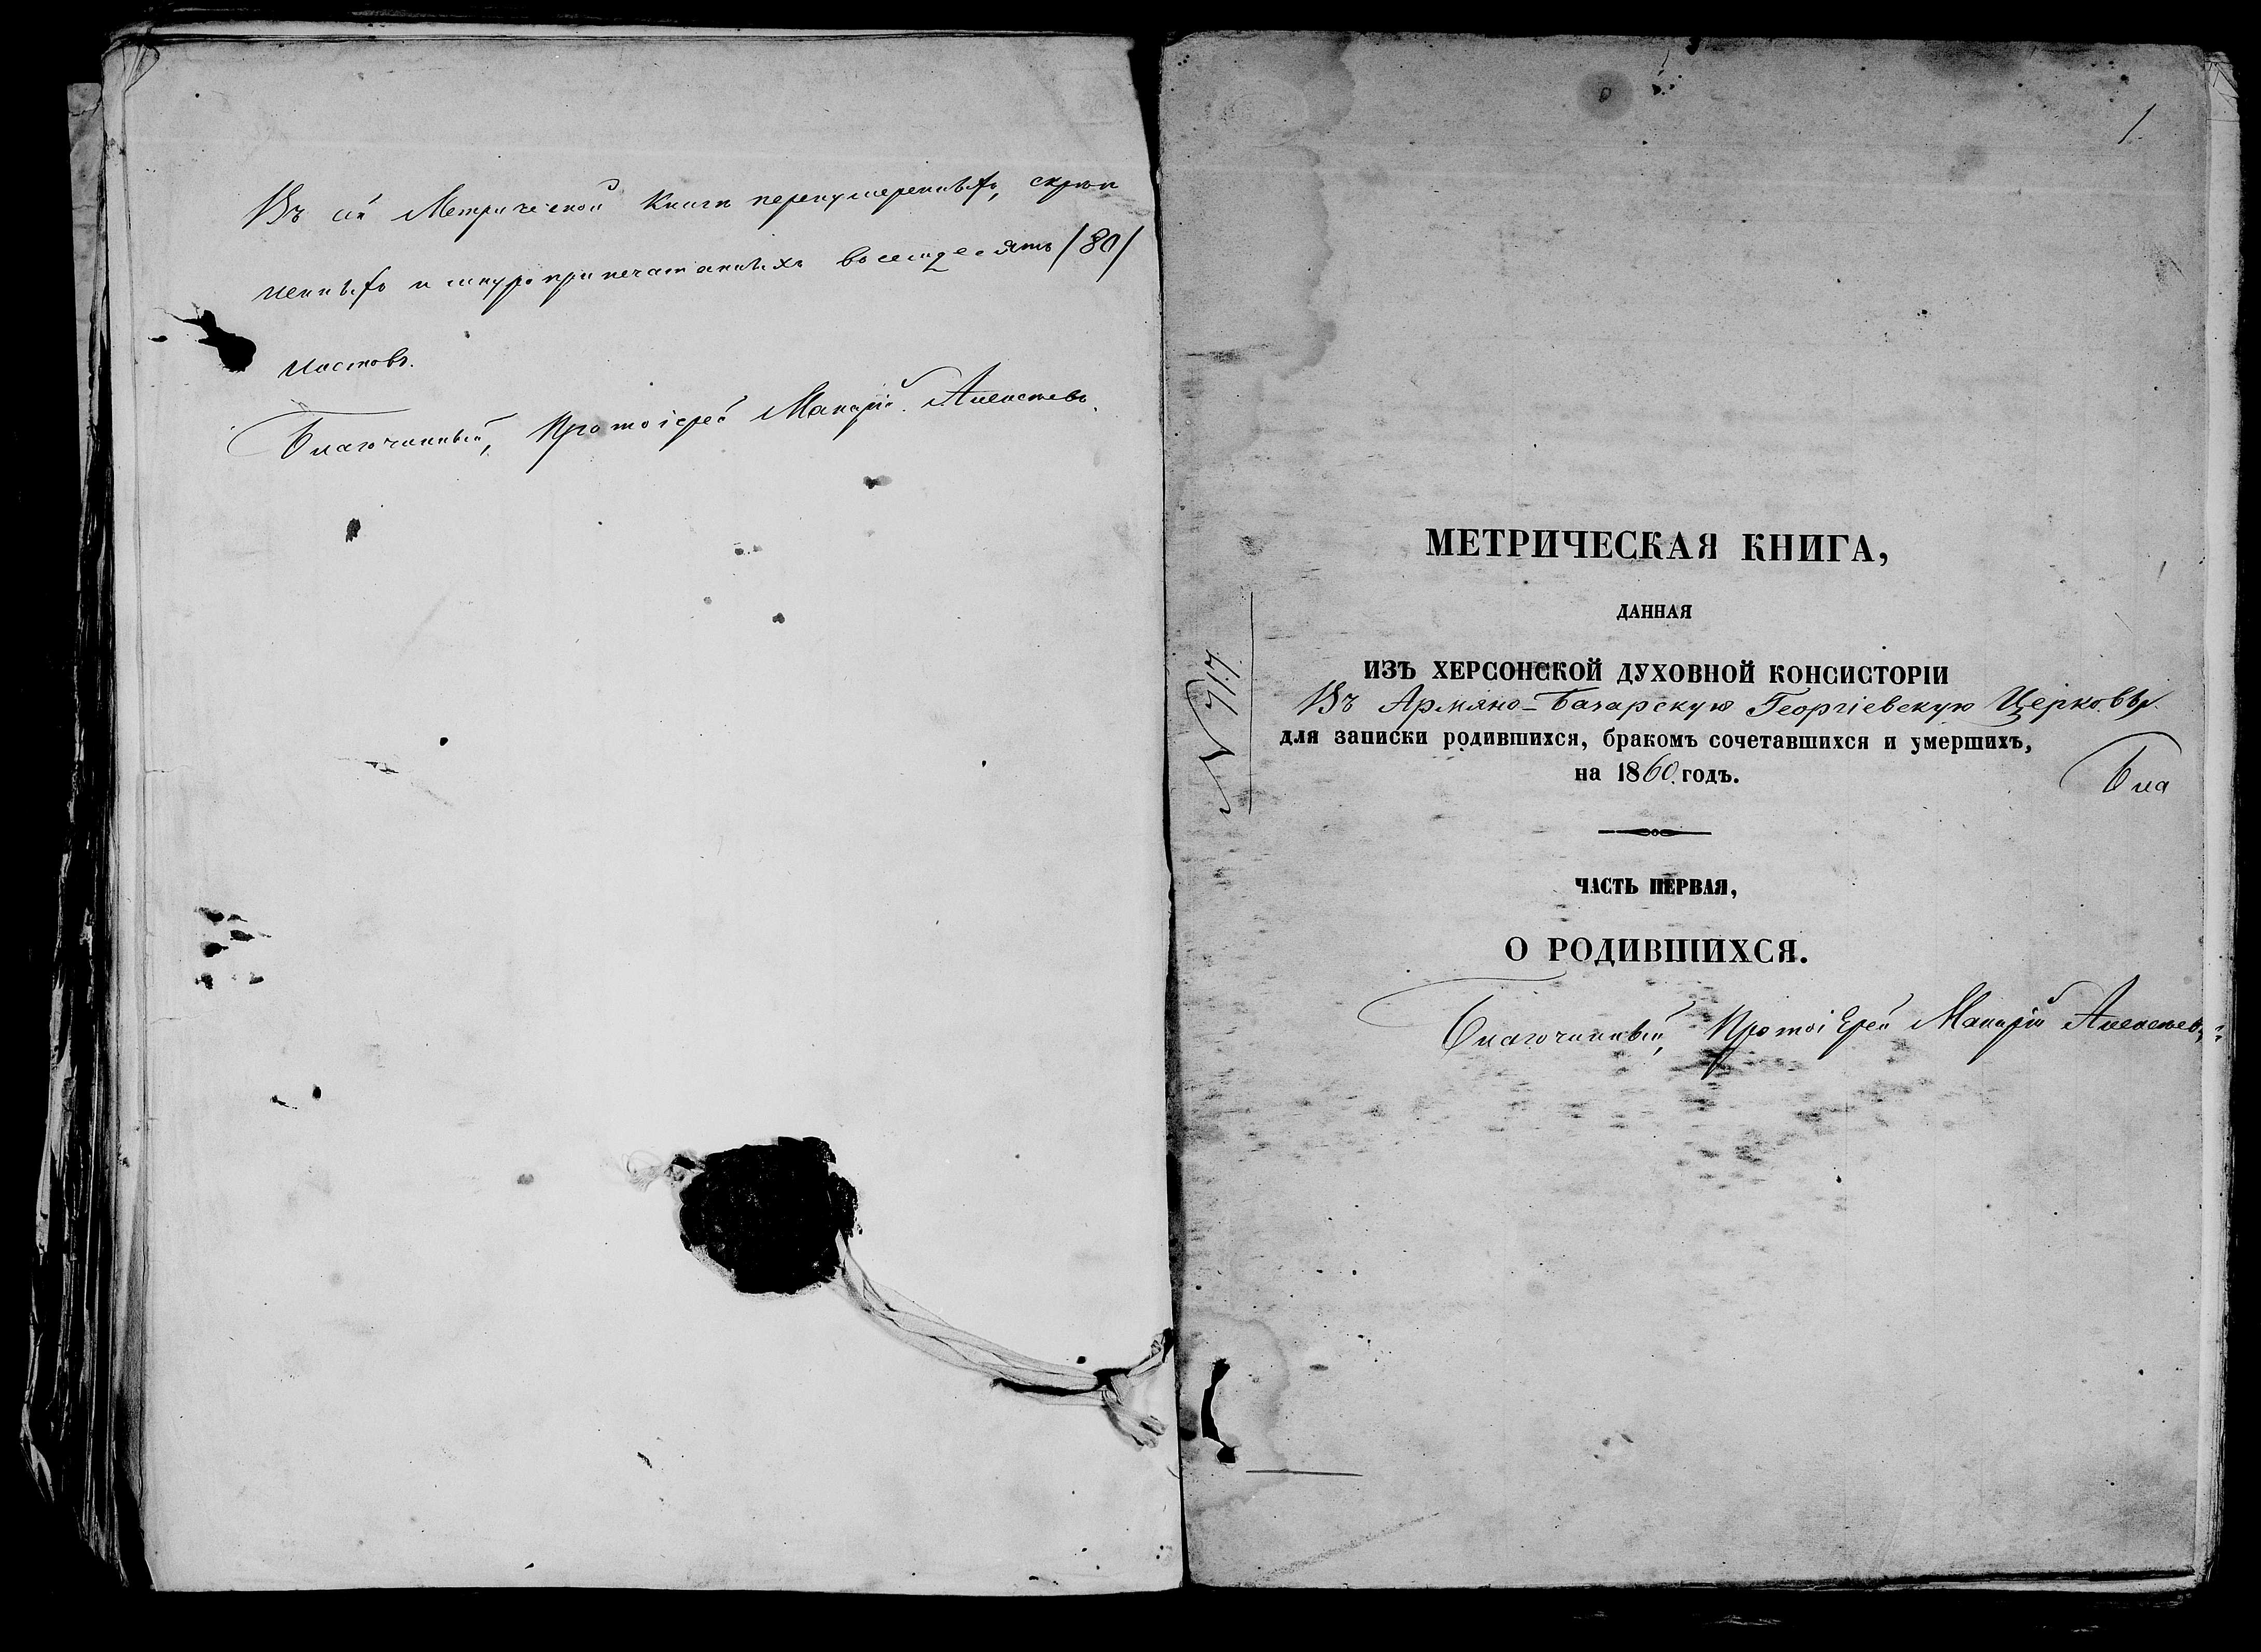 Въ сей Метрической Книги перенумерепныхъ, скреп
ленныхъ и шнуроприпечатанныхъ восемдесятъ /80/
листовъ.
Благочинный, Протоіерей Макарій Алексѣевъ.
1
МЕТРИЧЕСКАЯ КНИГА,
ДАННАЯ
ИЗЪ ХЕРСОНСКОЙ ДУХОВНОЙ КОНСИСТОРІИ
Въ Армяно-Базарскую Георгіевскую Церковь
для записки родившихся, бракомъ сочетавшихся и умершихъ,
на 1860. годъ.
Бла
N 717.
ЧАСТЬ ПЕРВАЯ,
О РОДИВШИХСЯ.
Благочинный, Протоіерей Макарій Алексѣевъ